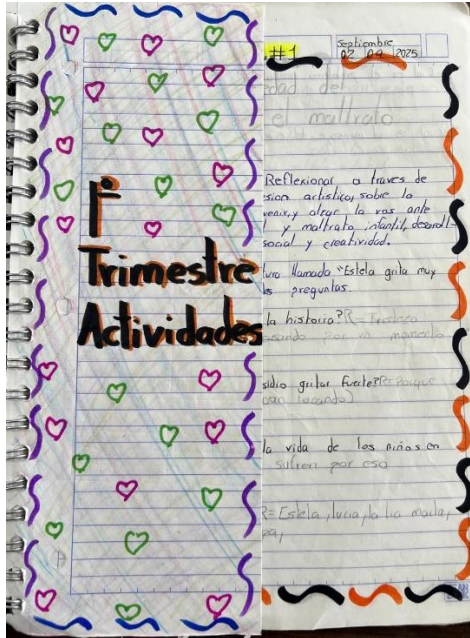 1°
Trimestre
Actividades
#1
Septiembre
02 09 2025
edad del
el maltrato
Reflexionar a traves de
sion artistica, sobre la
venir, y alzar la vos ante
l y maltrato infantil, desaroll-
social y creatividad.
ura llamada "Estela grita muy
s preguntas.
la historia? R= tristeza
asando por un momento
sidio gritar fuerte? R= porque
ban tocando)
la vida de los niños en
sufren por eso
R= Estela, lucia, la tia marla,